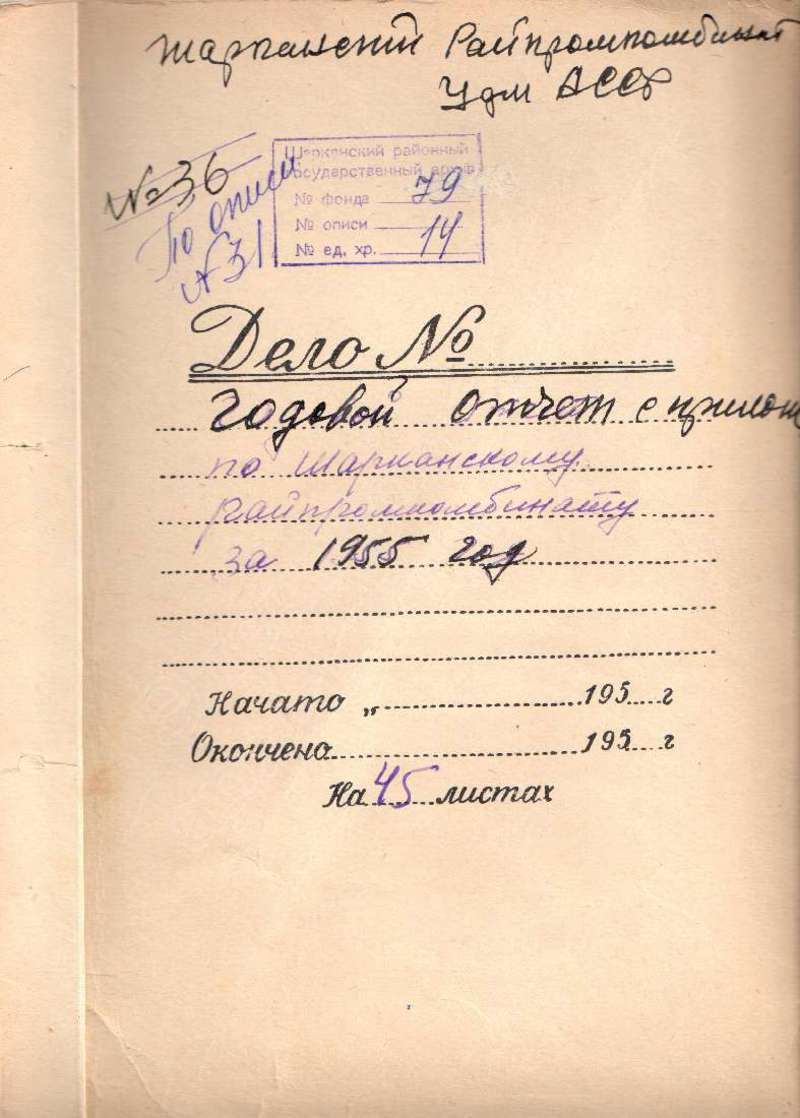 Шарканский Райпромкомбинат
Удм АССР
№ 36
По описи
№ 31
Шарканский районный
государственный архив
№ фонда 79
№ описи
№ ед. хр. 14
Дело №
годовой отчет с прилож
по Шарканскому
райпромкомбинату
за 1955 год
Начато „ 195 г
Окончено 195 г
На 45 листах